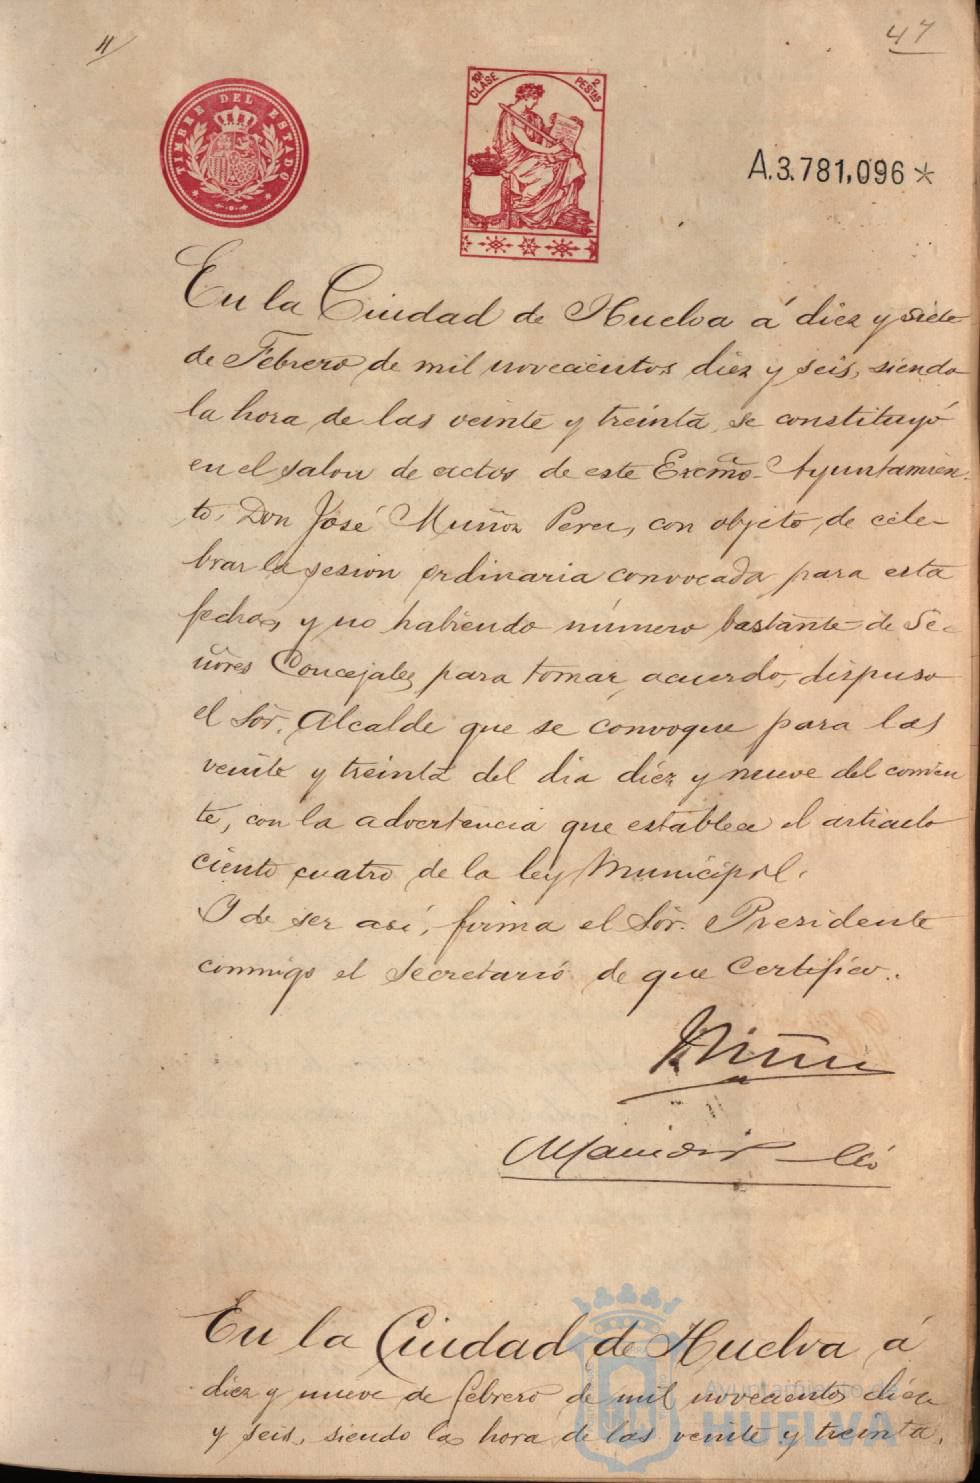 47
TIMBRE DEL ESTADO
10A CLASE 2 PESTAS
A.3.781,096*
En la Ciudad de Huelva á diez y siete
de Febrero de mil novecientos diez y seis, siendo
la hora de las veinte y treinta, se constituyó
en el salon de actos de este Excmo. Ayuntamien-
to, Don José Muñoz Perez, con objeto de cele-
brar la sesion ordinaria convocada para esta
fecha, y no habiendo número bastante de Se-
ñores Concejales para tomar acuerdo, dispuso
el Sor. Alcalde que se convoque para las
veinte y treinta del dia diez y nueve del corrien
te, con la advertencia que establece el articulo
ciento cuatro de la ley Municipal.
Y de ser así, firma el Sor. Presidente
conmigo el Secretario de que Certifico.
En la Ciudad de Huelva á
diez y nueve de febrero de mil novecientos diez
y seis, siendo la hora de las veinte y treinta,
Ayuntamiento de
HUELVA